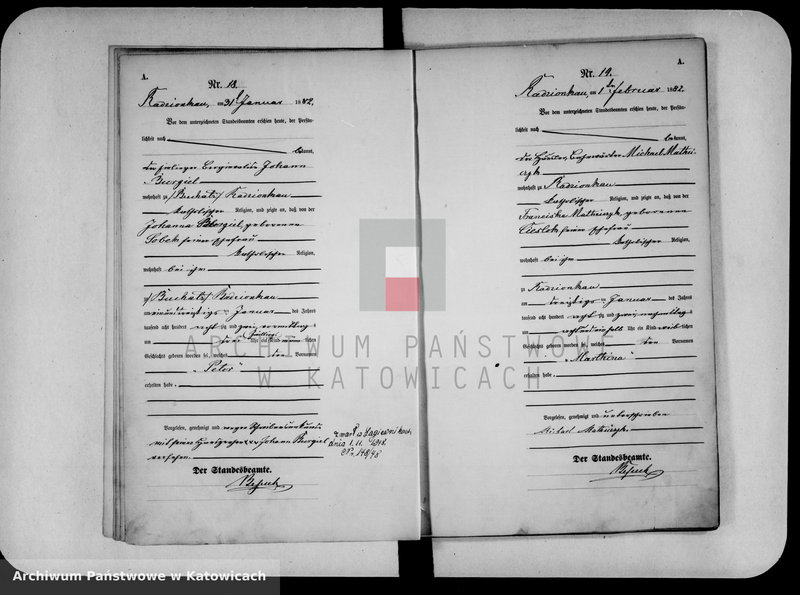 A.
Nr. 13.
Radzionkau, am 31 t Januar 1882.
Vor dem unterzeichneten Standesbeamten erschien heute, der Persön-
lichkeit nach
bekannt,
Johann
Burgiel
wohnhaft zu (Buchatz) Radzionkau
katholischer Religion, und zeigte an, daß von der
Johanna Burgiel, geborenen
Sobek seiner Ehefrau
katholischer Religion,
wohnhaft bei ihm
zu (Buchatz) Radzionkau
am einunddreißigsten Januar des Jahres
tausend acht hundert achtzig und zwei Vormittag s
um drei Uhr ein Kind männlichen
Geschlechts geboren worden sei, welches den Vornamen
"Peter"
erhalten habe.
Vorgelesen, genehmigt und wegen
mit seinem Handzeichen Johann Burgiel
versehen.
zmarł w Łagiewnikach
dnia 1.11. 1948
Nr. 148/48
Der Standesbeamte.
A.
Nr. 14.
Radzionkau, am 1 ten Februar 1882.
Vor dem unterzeichneten Standesbeamten erschien heute, der Persön-
lichkeit nach
bekannt,
der Häusler, Michael Mathei-
czyk
wohnhaft zu Radzionkau
katholischer Religion, und zeigte an, daß von der
Franciska Matheiczyk, geborenen
Cieslok, seiner Ehefrau
katholischer Religion,
wohnhaft bei ihm
zu Radzionkau
am dreißigsten Januar des Jahres
tausend acht hundert achtzig und zwei Nachmittag s
um Uhr ein Kind weiblichen
Geschlechts geboren worden sei, welches den Vornamen
"Marthina"
erhalten habe.
Vorgelesen, genehmigt und unterschrieben
Michael Matheiczyk
Der Standesbeamte.
ARCHIWUM PAŃSTWOWE
W KATOWICACH
Archiwum Państwowe w Katowicach